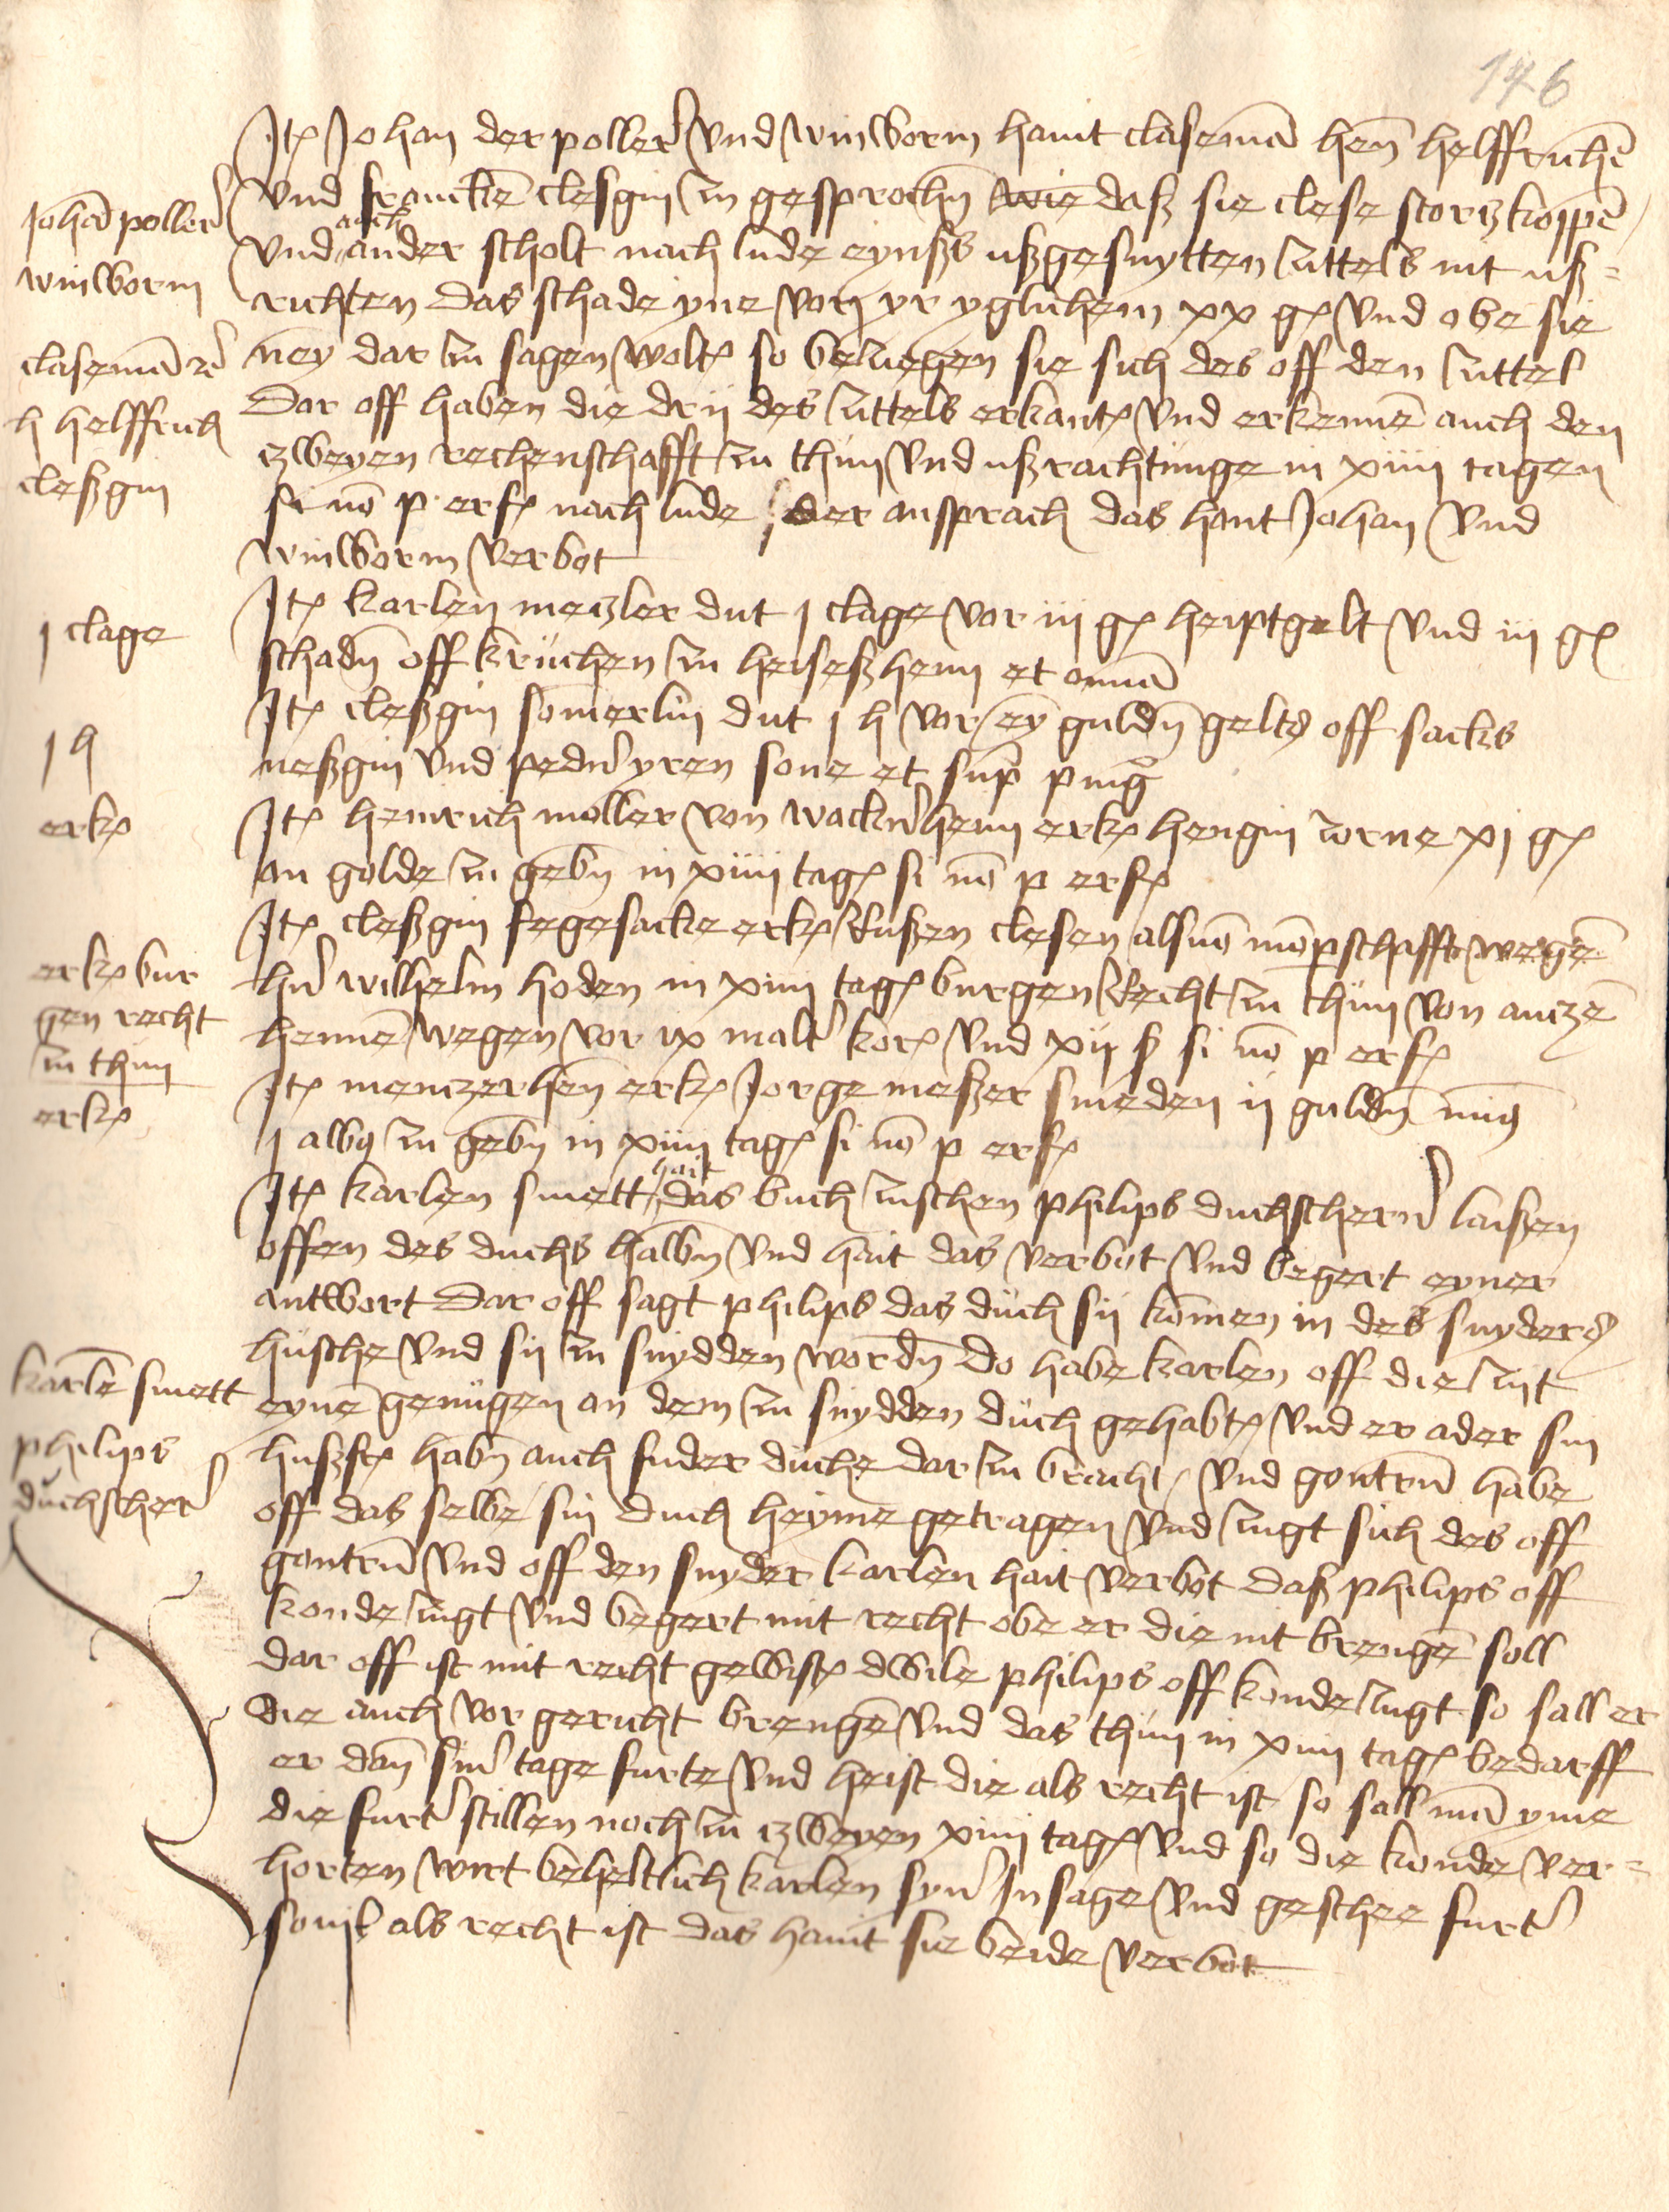 146
Johan̄ poller
winworm
claseman̄ rc̄
h helffrich
cleßgin
Itē Johan der poller vnd winworm hait claseman̄ hen̄ helffrichē
vnd franckē cleſgin zu geſprochn̄ wie daß ſie cleſe ſtorczkoppē
vnd auch ander ſcholt nach lude eynßs ußgeſnytten zittels nit uß=
richten das ſchade yne von yr yglichem xx gꝭ vnd obe ſie
ney dar zu ſagen woltꝭ ſo beziegen ſie ſich des off den zittel
Dar off haben die drij des zittels erkantꝭ vnd erkennē auch den
czweyen rechenſchafft zu thun vnd ußrachtunge in xiiij tagen
ſi nō p erfꝭ nach lude der anſprach das hant Johan vnd
winworm verbot
j clage
Itē karlen meczler dut j clage vor iij gꝭ heiptgelt vnd iij gꝭ
ſchadn̄ off krůchen zu heſeßheim et om̄ia
j h
Itē cleßgin ſom̄erlin dut j h vor ey̅ guldn̄ gelts off ſacks
neßgin vnd peder yren ſone et ſup̄ pīg
erkꝭ
Itē heinrich moller von wackernheim erkꝭ hengin zorne xj gꝭ
an golde zu gebn̄ in xiiij tagꝭ ſi nō p erfꝭ
erkꝭ bur
gen recht
zu thun
Itē cleßgin fegeſacke erkꝭ Rußen cleſen als von mōpſchafft wegē
her wilhelm hoden in xiiij tagꝭ burgen Recht zu thun von anczē
hennē wegen vor ix malt' korꝭ vnd xij ß ſi nō p erfꝭ
erkꝭ
Itē menczerhen̄ erkꝭ Jorge meßer ſmeden ij guldn̄ mīg
j albꝯ zu gebn̄ in xiiij tagꝭ ſi nō p erfꝭ
karlē ſmett
philips
duchſcher'
Itē karlen ſmett hait das buch zuſchen philips duchſcherer laißen
offen des duchs halbn̄ vnd hait das verbot vnd begert eyner
antwort Dar off ſagt philips das důch ſij komen in des ſnyders
hůſche vnd ſij zu ſnydden wordn̄ Do habe karlen off die zijt
eynē genůgen an dem zu ſnydden důch gehabtꝭ vnd er ader ſin
hußfꝭ habn̄ auch fuder důche dar zu bracht / vnd gontrū habe
off das ſelbe ſin duch heyme getragen vnd zugt ſich des off
gontrū vnd off den ſnyder karlen hait verbot daß philips off
konde zugt vnd begert mit recht obe er die nit brengē ſoll
dar off iſt mit recht gewiſtꝭ dwile philips off konde zugt ſo ſall er
die auch vor gericht brengē vnd das thun in xiiij tagꝭ bedarff
er dan̄ ſin' tage furte vnd heiſt die als recht iſt ſo ſall man̄ yme
die furt' ſtillen noch zu czweyen xiiij tagꝭ vnd ſo die konde ver=
horten wirt beheltlich karlen ſyn' Inſage vnd geſchee furt'
ſouil als recht iſt das hant ſie beide verbot